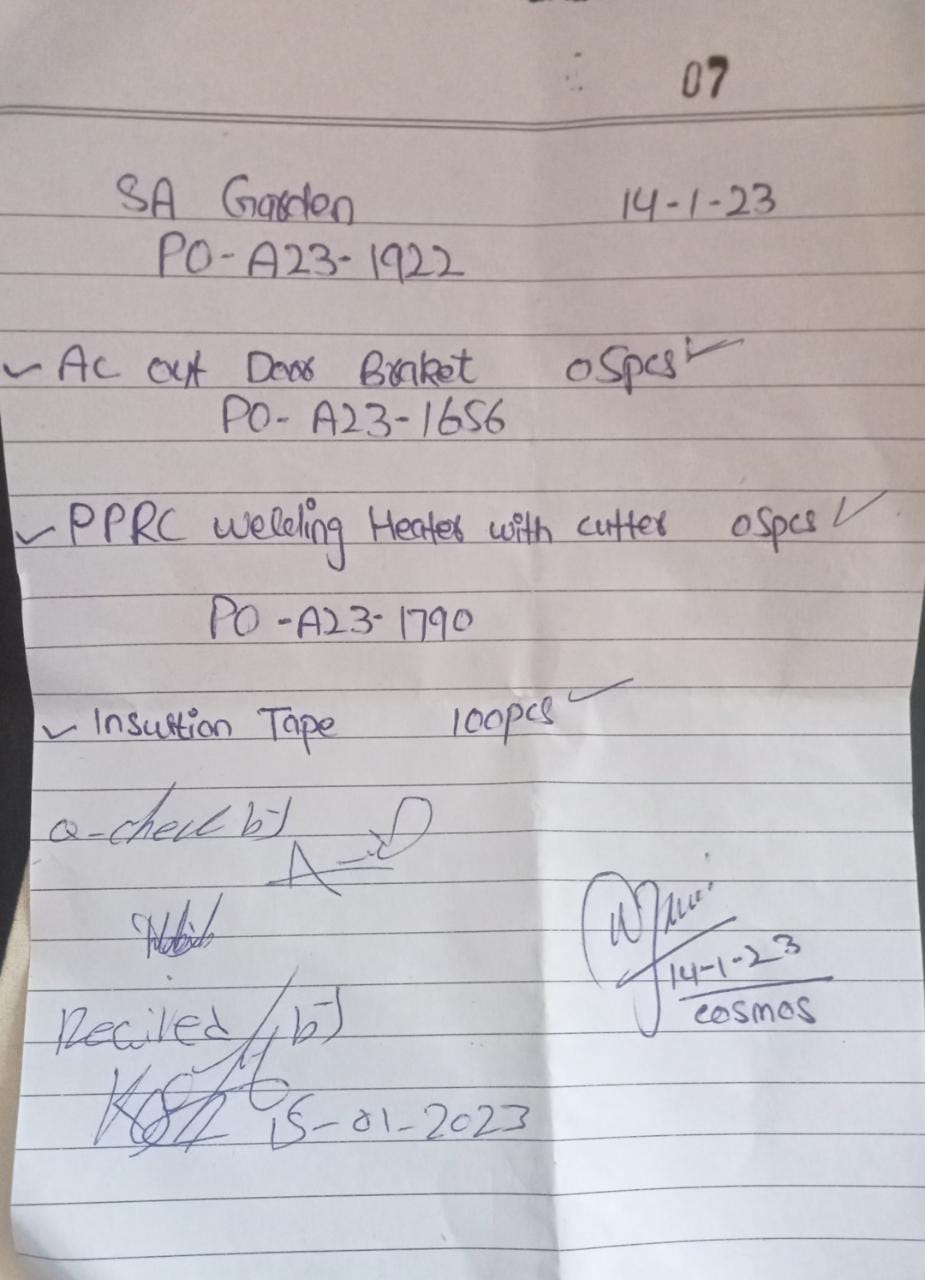 07
SA Garden 14-1-23
PO-A23-1922
Ac out Door Braket 05pcs
PO-A23-1656
PPRC welding Heater with cutter 05pcs
PO-A23-1790
Insultion Tape 100pcs
Q-check by
14-1-23
cosmos
Recived by
15-01-2023